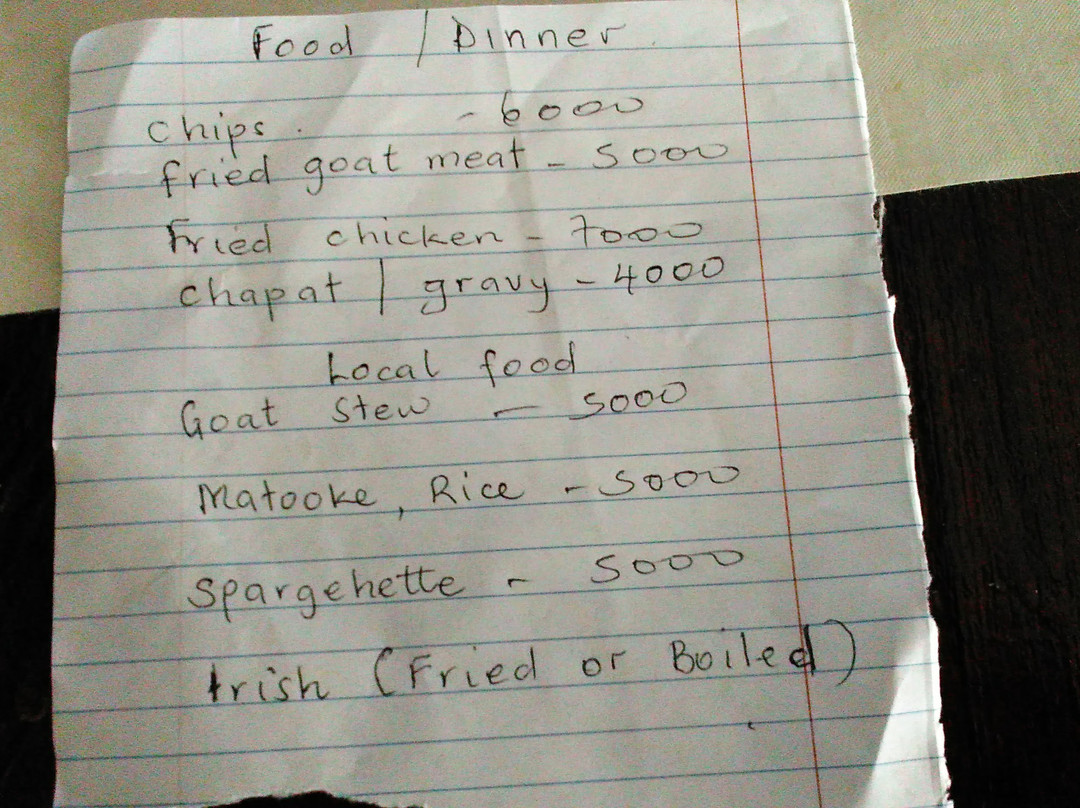 Food / Dinner
Chips. - 6000
fried goat meat - 5000
Fried chicken - 7000
chapat / gravy - 4000
Local food
Goat Stew - 5000
Matooke, Rice - 5000
Spargehette - 5000
Irish (Fried or Boiled)